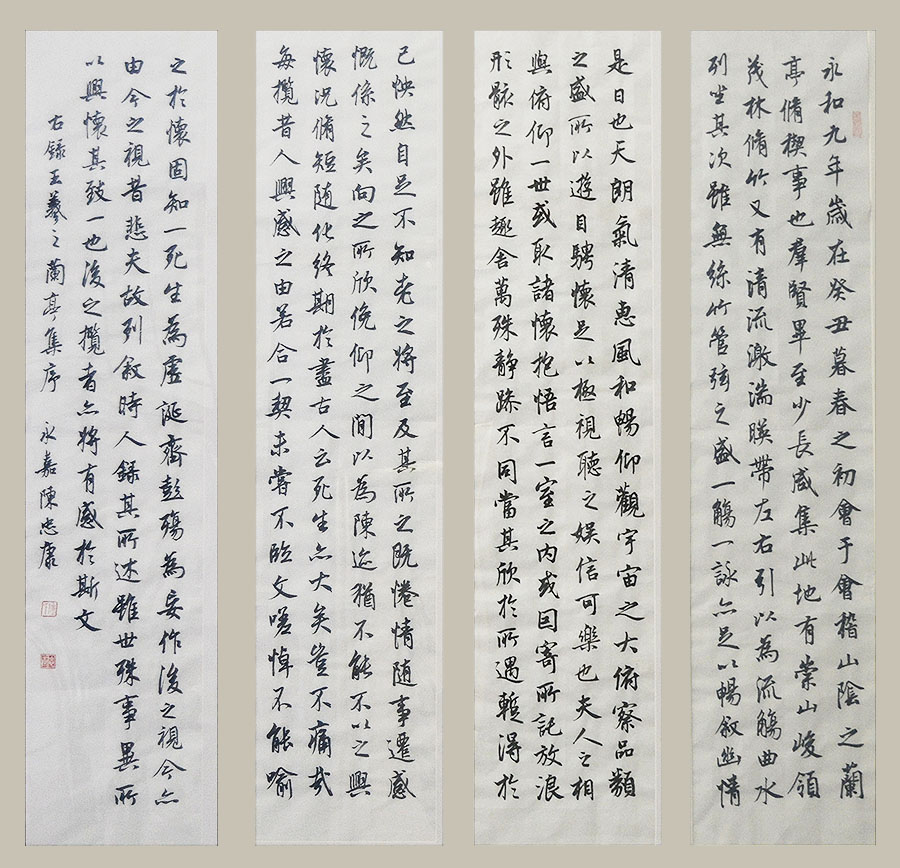 永和九年歲在癸丑暮春之初會于會稽山陰之蘭
亭脩禊事也羣賢畢至少長咸集此地有崇山峻領
茂林脩竹又有清流激湍暎帶左右引以為流觴曲水
列坐其次雖無絲竹管弦之盛一觴一詠亦足以暢敘幽情
是日也天朗氣清惠風和暢仰觀宇宙之大俯察品類
之盛所以遊目騁懷足以極視聽之娛信可樂也夫人之相
與俯仰一世或取諸懷抱悟言一室之內或因寄所託放浪
形骸之外雖趣舍萬殊靜躁不同當其欣於所遇蹔得於
己怏然自足不知老之將至及其所之既惓情隨事遷感
慨係之矣向之所欣俛仰之間以為陳迹猶不能不以之興
懷況脩短隨化終期於盡古人云死生亦大矣豈不痛哉
每攬昔人興感之由若合一契未嘗不臨文嗟悼不能喻
之於懷固知一死生為虛誕齊彭殤為妄作後之視今亦
由今之視昔悲夫故列敘時人錄其所述雖世殊事異所
以興懷其致一也後之攬者亦將有感於斯文
右錄王羲之蘭亭集序 永嘉陳忠康